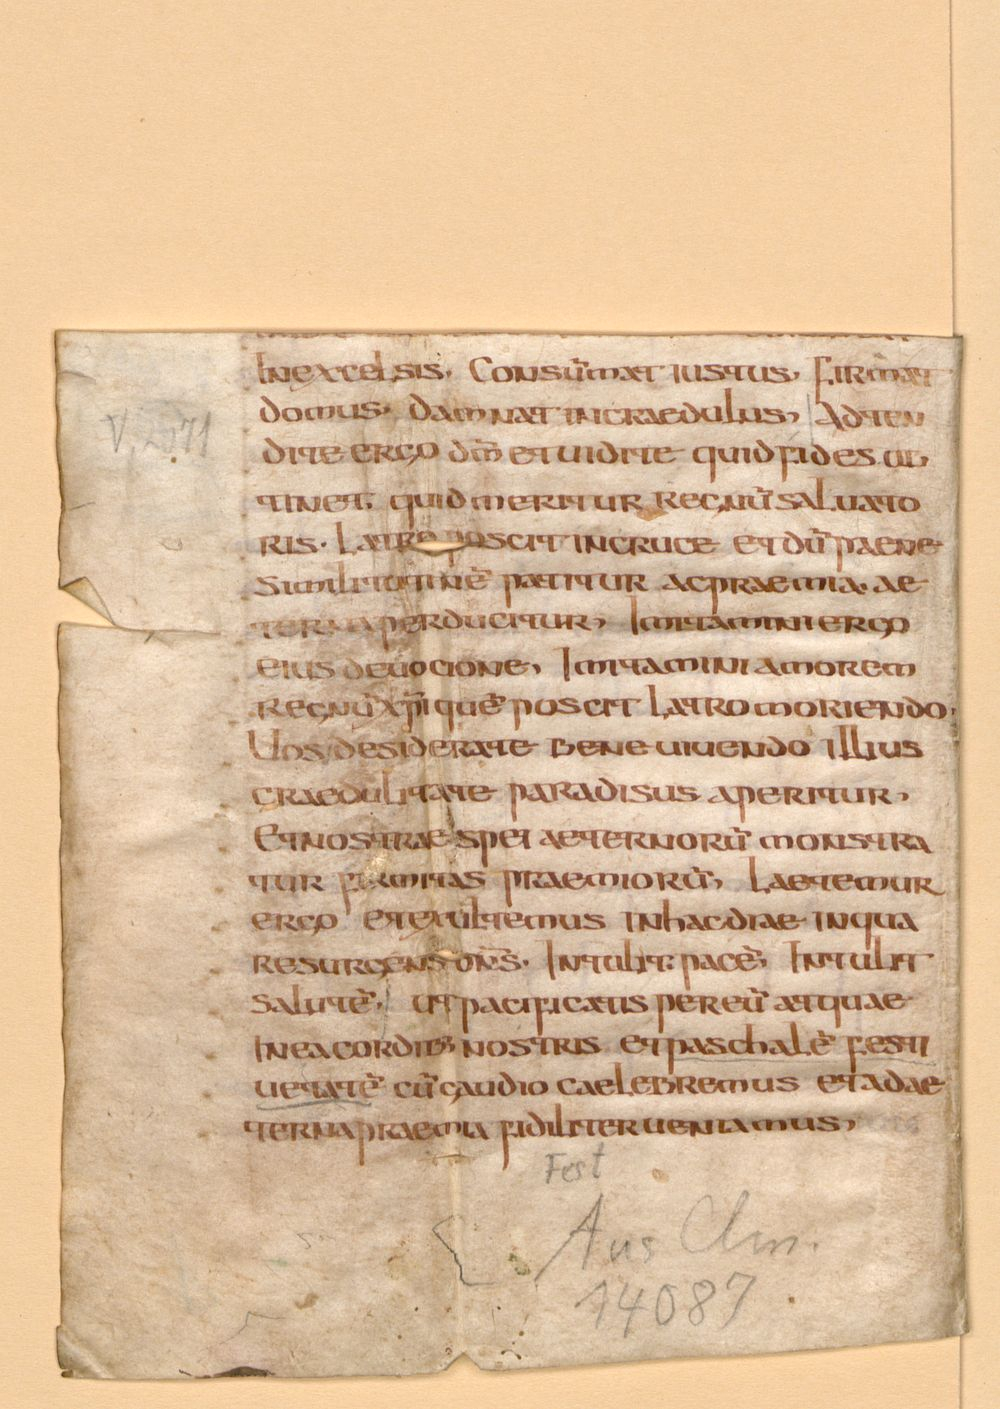 Inexcelsis. Consūmat iustus, firmat
domus, damnat incraedulus, Adten
dite ergo dm̄ et uidite quid fides ub
tinet, quid meritur regnū saluato
ris. Latro poscit incruce et dū paene
similitutinē patitur acpraemia. ae
terna perducitur, Imitamini ergo
eius deuocione, Imitamini amorem
regnū xp̄i quē poscit latro moriendo.
Uos desiderate bene uiuendo illius
craedulitate paradisus aperitur,
Et nostrae spei aeternorū monstra
tur firmitas praemiorū, Laetemur
ergo et exultemus inhacdiae inqua
resurgens dn̄s. Intulit pacē, Intulit
salutē, ut pacificatis per eū atquae
Inea cordib; nostris et paschalē festi
uetatē cū gaudio caelebremus et adae
terna praemia fidiliter ueniamus,
V, 2071
Fest
Aus Clm.
14087